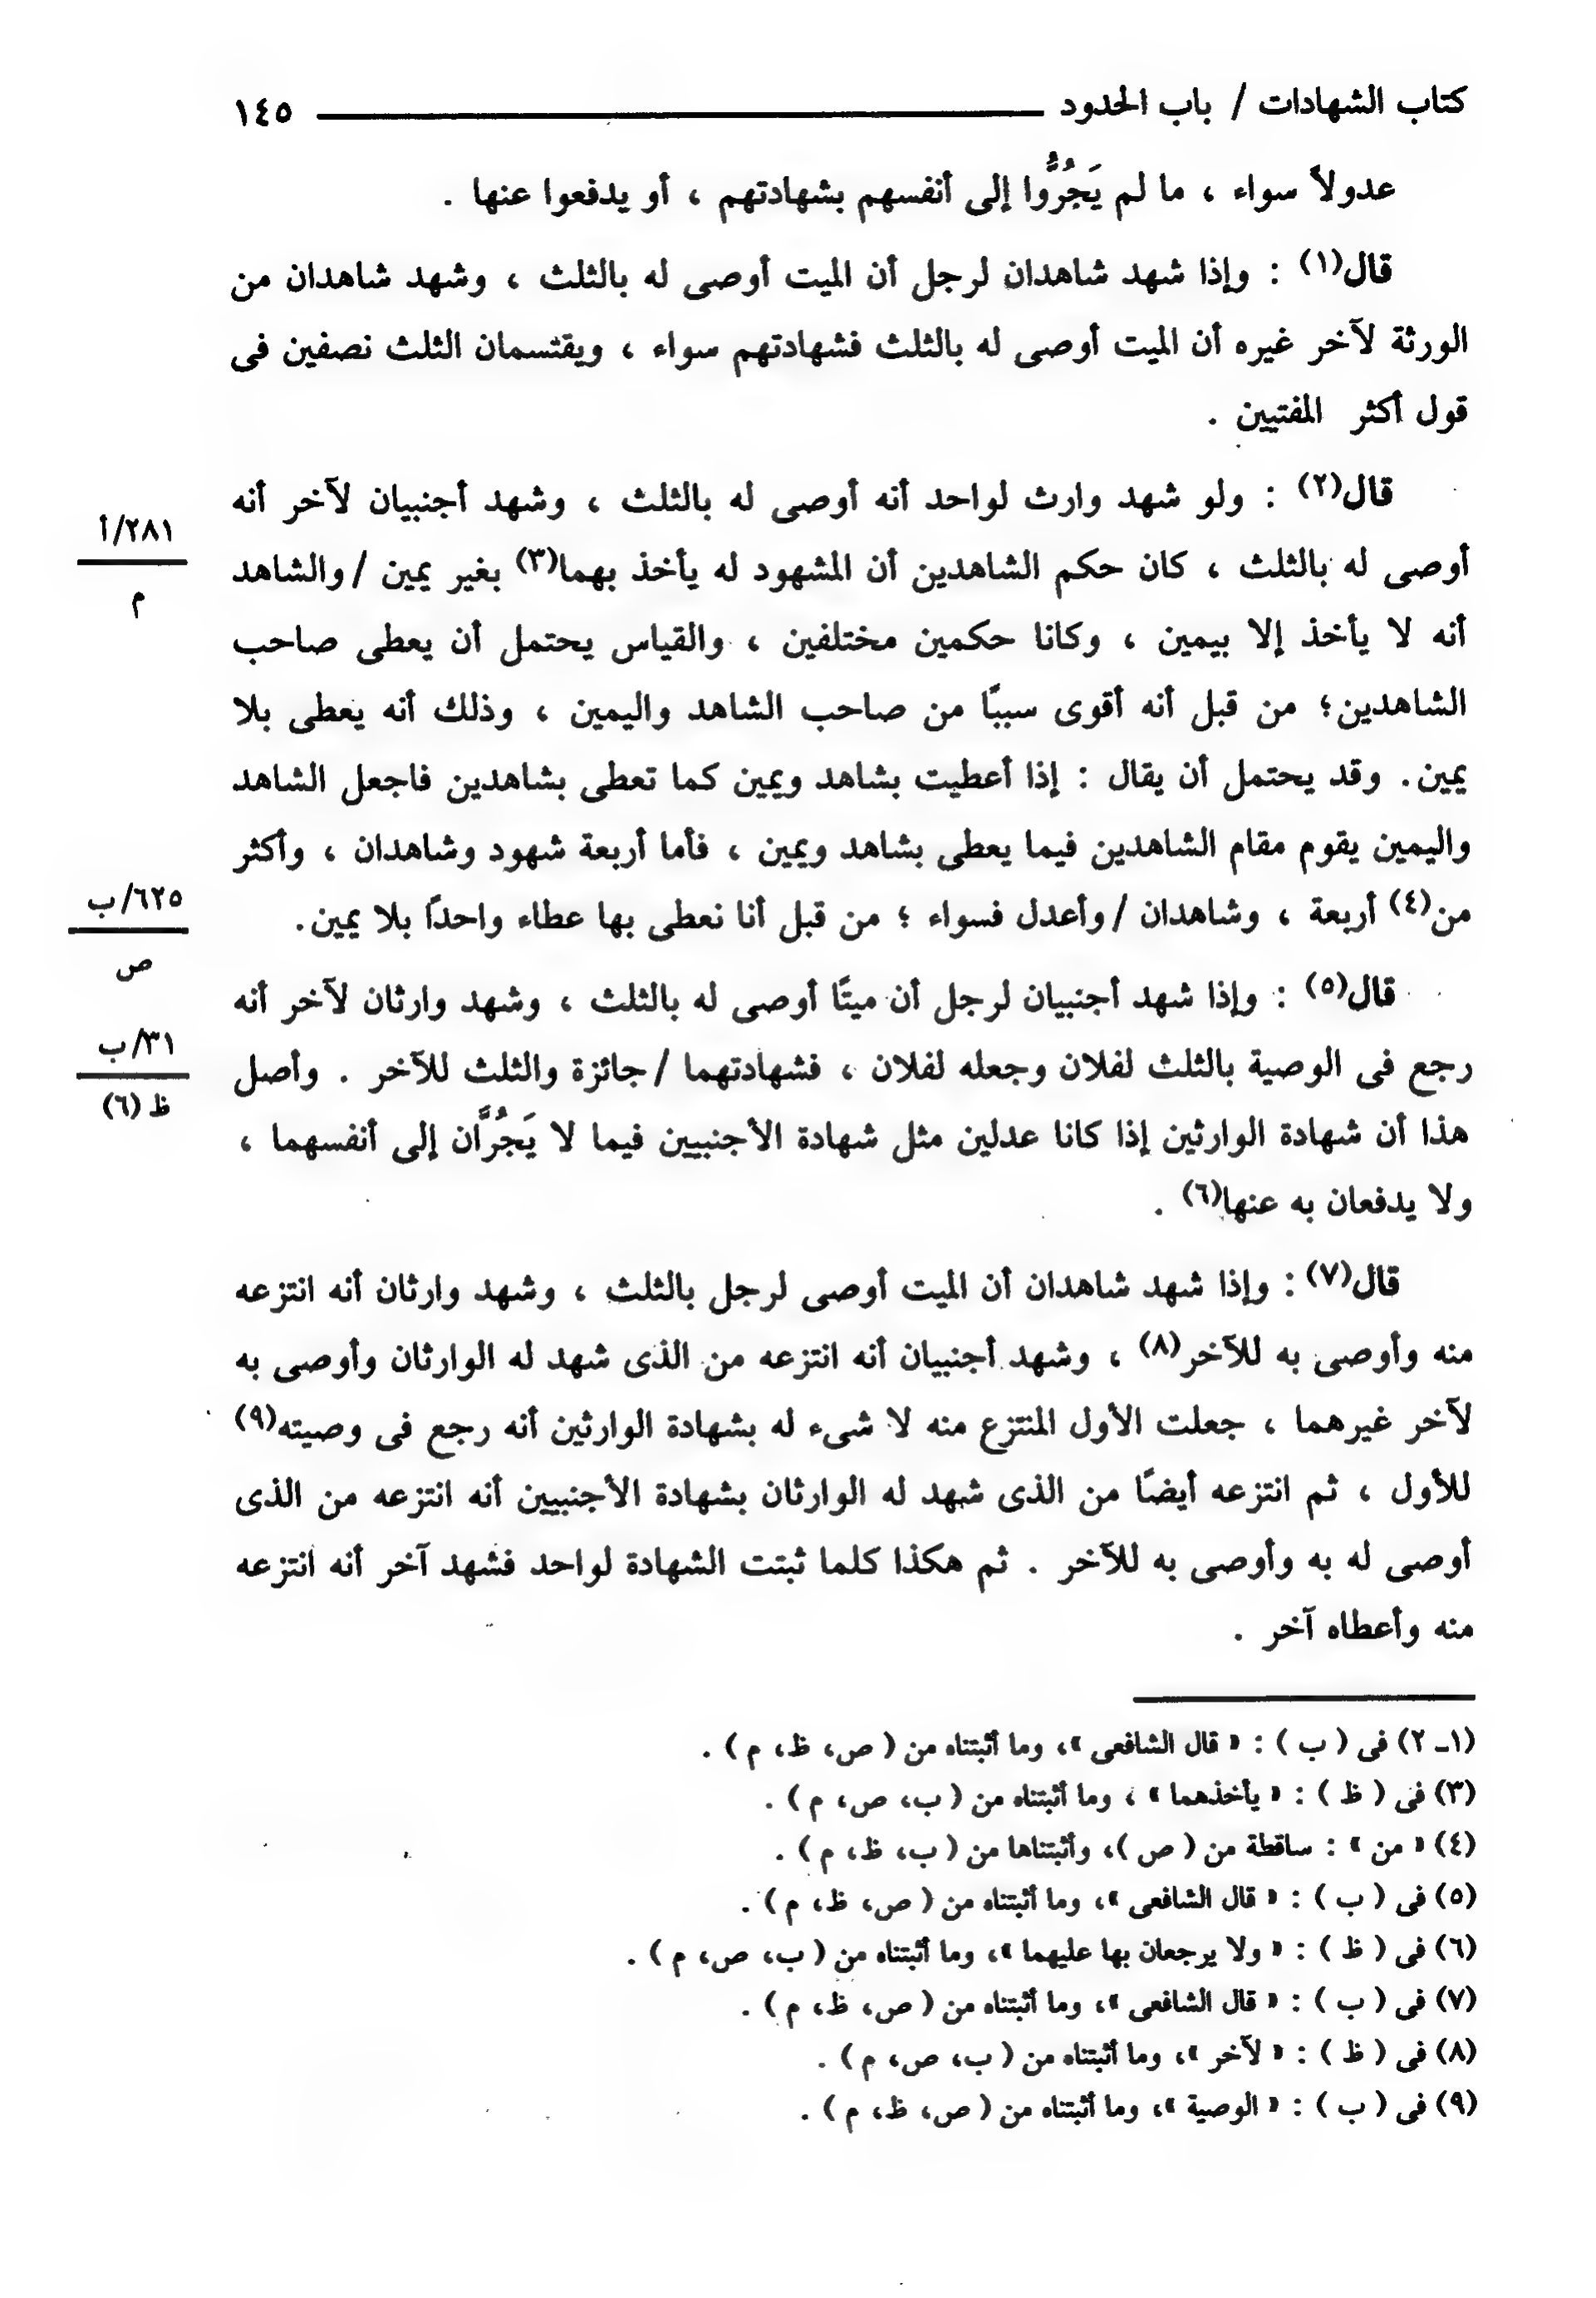 كتاب الشهادات / باب الحدود ١٤٥
عدولاً سواء ، ما لم يَجُرُّوا إلى أنفسهم بشهادتهم ، أو يدفعوا عنها .
قال(١) : وإذا شهد شاهدان لرجل أن الميت أوصى له بالثلث ، وشهد شاهدان من
الورثة لآخر غيره أن الميت أوصى له بالثلث فشهادتهم سواء ، ويقتسمان الثلث نصفين فى
قول أكثر المفتيين .
قال(٢) : ولو شهد وارث لواحد أنه أوصى له بالثلث ، وشهد أجنبيان لآخر أنه
٢٨١/أ
أوصى له بالثلث ، كان حكم الشاهدين أن المشهود له يأخذ بهما(٣) بغير يمين / والشاهد
م
أنه لا يأخذ إلا بيمين ، وكانا حكمين مختلفين ، والقياس يحتمل أن يعطى صاحب
الشاهدين؛ من قبل أنه أقوى سببًا من صاحب الشاهد واليمين ، وذلك أنه يعطى بلا
يمين. وقد يحتمل أن يقال : إذا أعطيت بشاهد ويمين كما تعطى بشاهدين فاجعل الشاهد
واليمين يقوم مقام الشاهدين فيما يعطى بشاهد ويمين ، فأما أربعة شهود وشاهدان ، وأكثر
٦٢٥/ب
من(٤) أربعة ، وشاهدان / وأعدل فسواء ؛ من قبل أنا نعطى بها عطاء واحدًا بلا يمين.
ص
قال(٥) : وإذا شهد أجنبيان لرجل أن ميتًا أوصى له بالثلث ، وشهد وارثان لآخر أنه
٣١/ب
رجع فى الوصية بالثلث لفلان وجعله لفلان ، فشهادتهما / جائزة والثلث للآخر . وأصل
ظ (٦)
هذا أن شهادة الوارثين إذا كانا عدلين مثل شهادة الأجنبيين فيما لا يَجُرَّان إلى أنفسهما ،
ولا يدفعان به عنها(٦) .
قال(٧) : وإذا شهد شاهدان أن الميت أوصى لرجل بالثلث ، وشهد وارثان أنه انتزعه
منه وأوصى به للآخر(٨) ، وشهد أجنبيان أنه انتزعه من الذى شهد له الوارثان وأوصى به
لآخر غيرهما ، جعلت الأول المنتزع منه لا شىء له بشهادة الوارثين أنه رجع فى وصيته(٩)
للأول ، ثم انتزعه أيضًا من الذى شهد له الوارثان بشهادة الأجنبيين أنه انتزعه من الذى
أوصى له به وأوصى به للآخر . ثم هكذا كلما ثبتت الشهادة لواحد فشهد آخر أنه انتزعه
منه وأعطاه آخر .
(١ـ ٢) فى ( ب ) : « قال الشافعى »، وما أثبتناه من ( ص، ظ، م ) .
(٣) فى ( ظ ) : « يأخذهما » ، وما أثبتناه من ( ب، ص، م ) .
(٤) « من » : ساقطة من ( ص )، وأثبتناها من ( ب، ظ، م ) .
(٥) فى ( ب ) : « قال الشافعى »، وما أثبتناه من ( ص، ظ، م ) .
(٦) فى ( ظ ) : « ولا يرجعان بها عليهما »، وما أثبتناه من ( ب، ص، م ) .
(٧) فى ( ب ) : « قال الشافعى »، وما أثبتناه من ( ص، ظ، م ) .
(٨) فى ( ظ ) : « لآخر »، وما أثبتناه من ( ب، ص، م ) .
(٩) فى ( ب ) : « الوصية »، وما أثبتناه من ( ص، ظ، م ) .